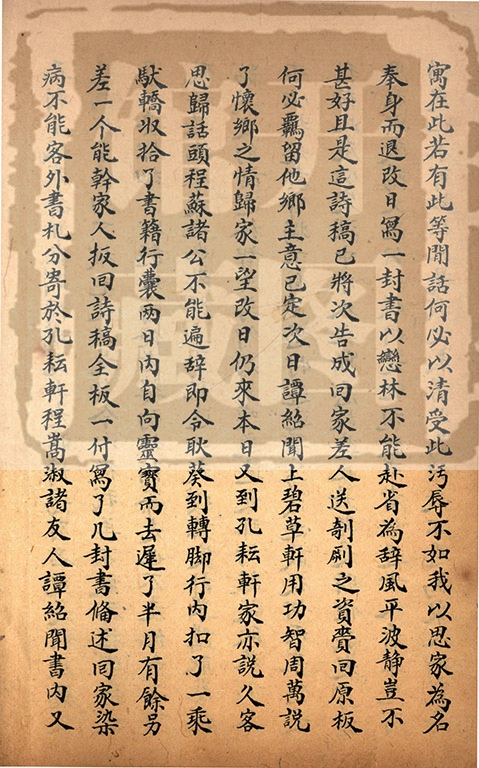 寓在此若有此等閒話何必以清受此汚辱不如我以思家為名
奉身而退改日寫一封書以戀林不能赴省為辞風平波静豈不
甚好且是這詩稿已將次告成回家差人送剞劂之資賫回原板
何必羈留他鄉主意已定次日譚紹聞上碧草軒用功智周萬説
了懷鄉之情歸家一望改日仍來本日又到孔耘軒家亦説久客
思歸話頭程蘇諸公不能遍辞即令耿葵到轉脚行内扣了一乘
馱轎收拾了書籍行囊两日内自向靈寳而去遲了半月有餘另
差一个能幹家人扳回詩稿全板一付寫了几封書俻述回家染
病不能客外書札分寄於孔耘軒程嵩淑諸友人譚紹聞書内又